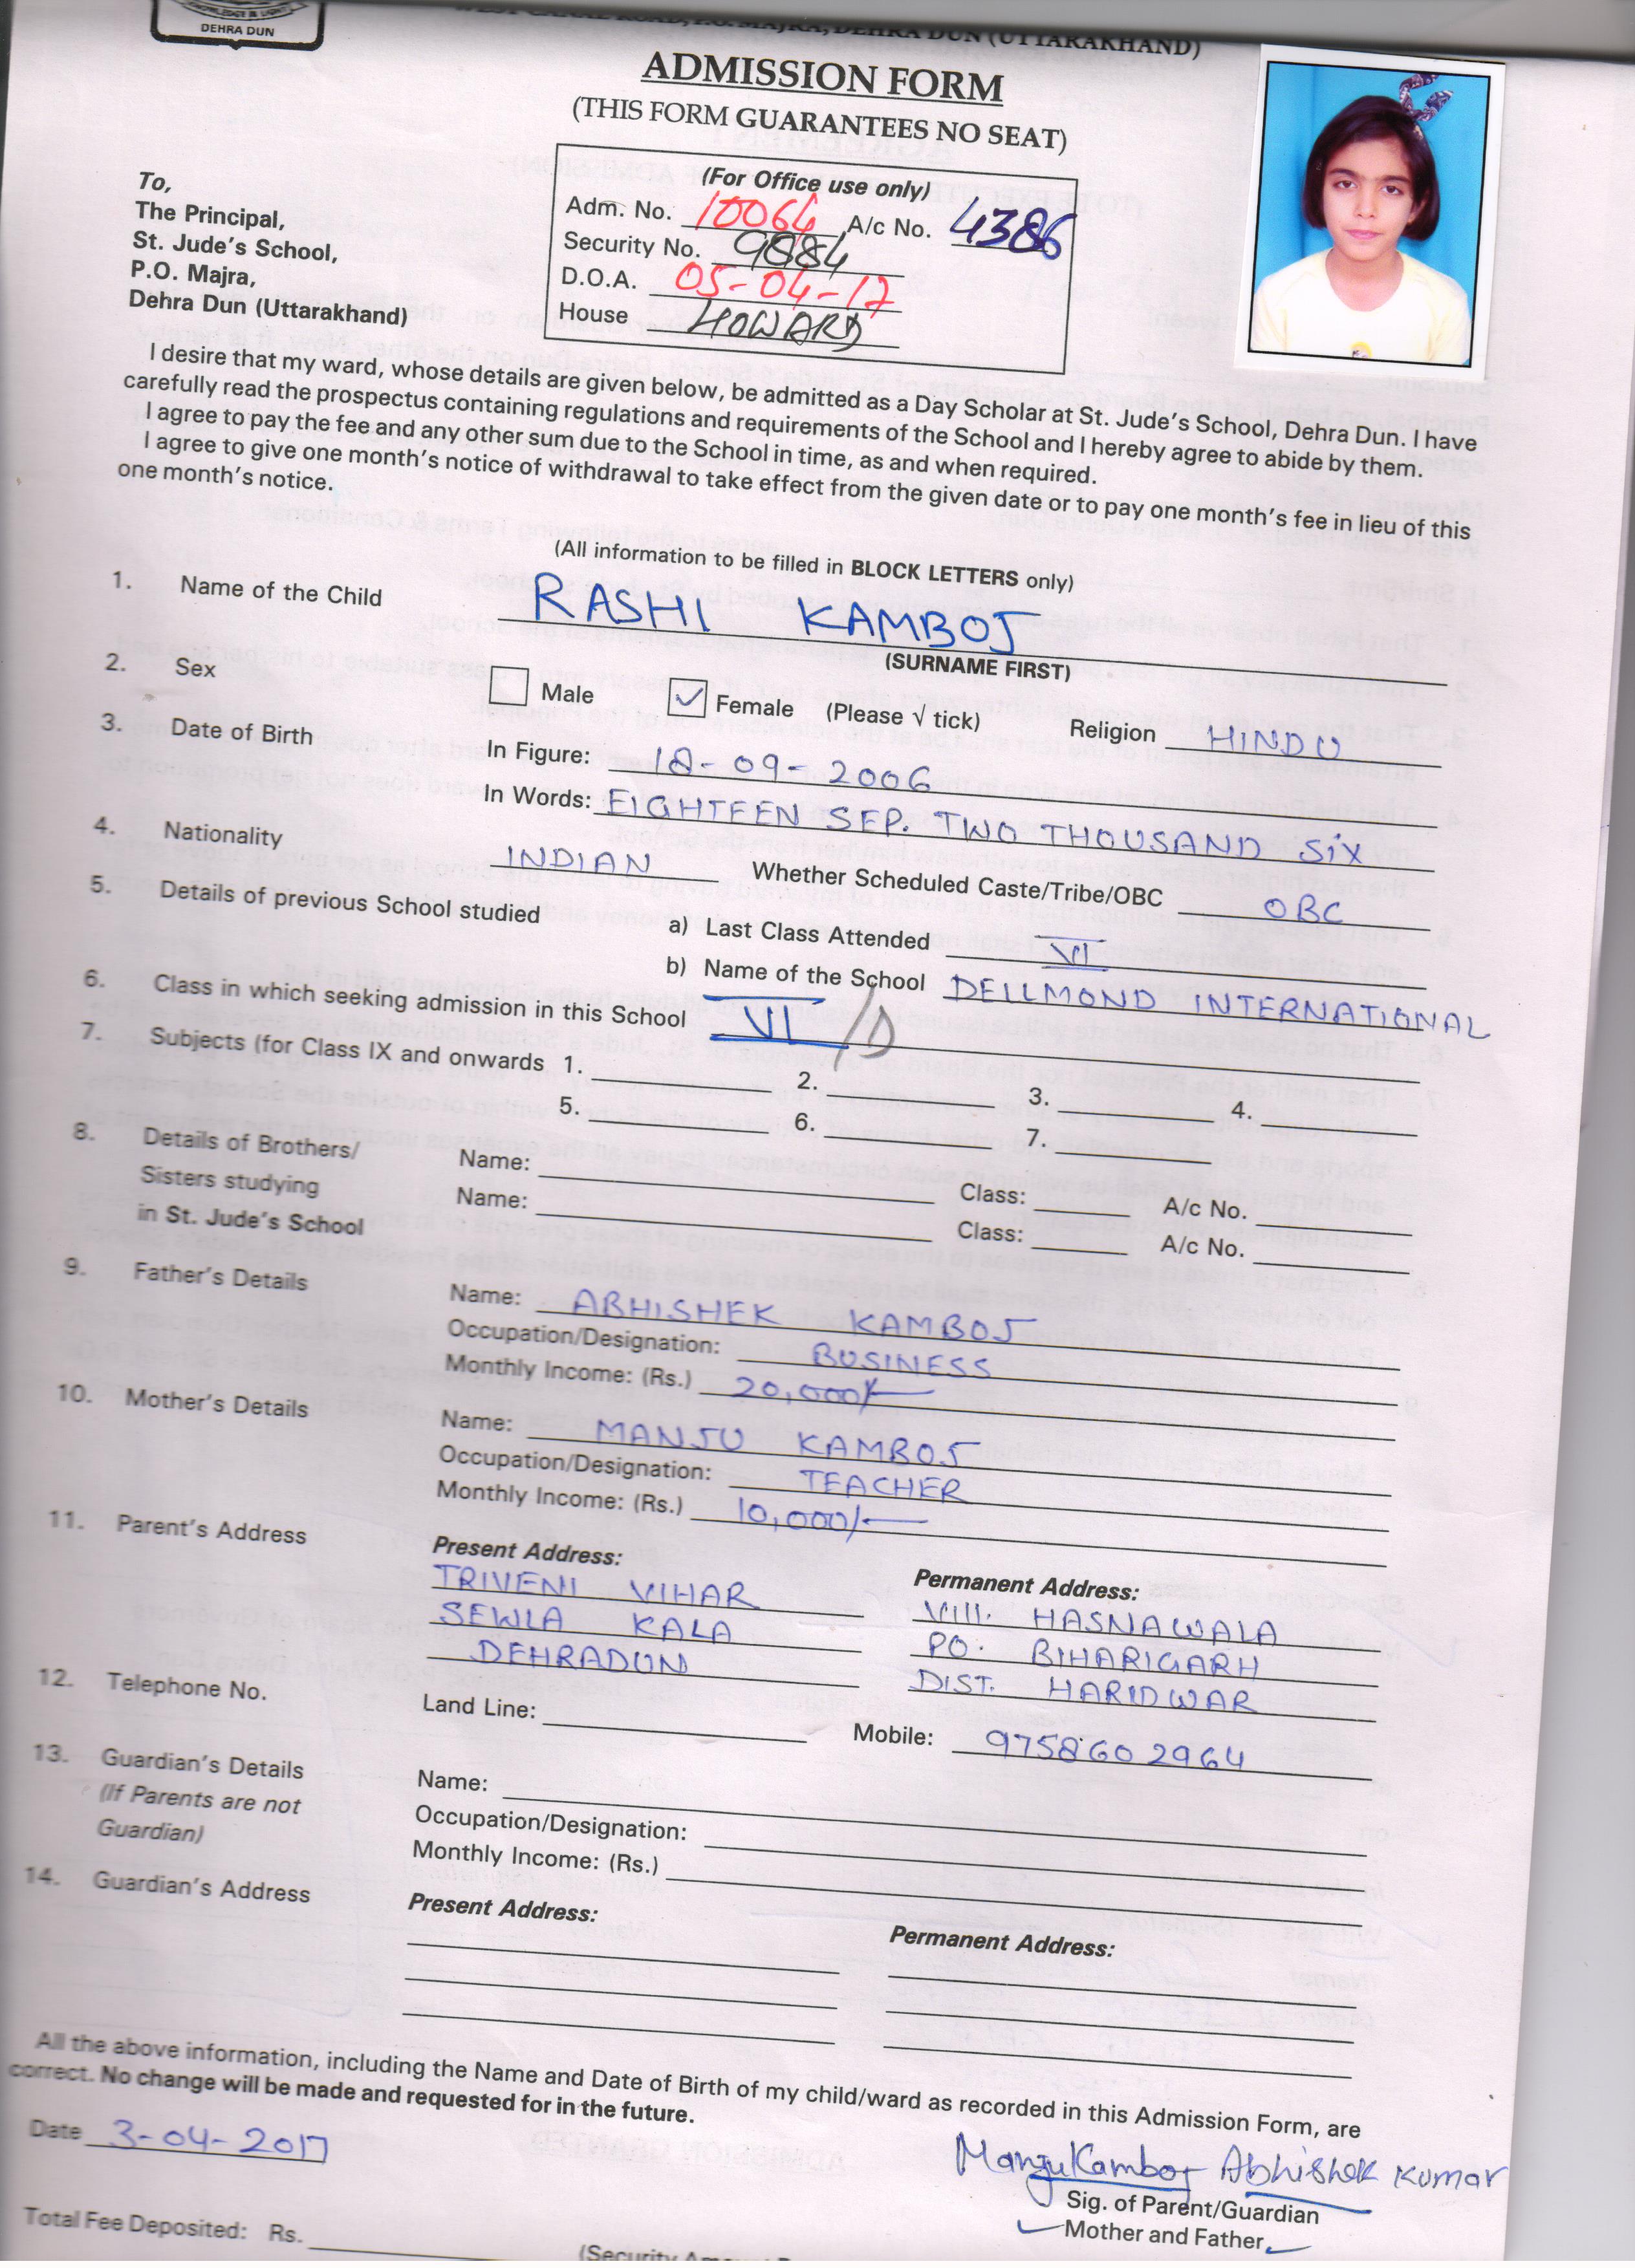 DEHRA DUN
WEST CANAL ROAD, P.O. MAJRA, DEHRA DUN (UTTARAKHAND)
ADMISSION FORM
(THIS FORM GUARANTEES NO SEAT)
To,
The Principal,
St. Jude's School,
P.O. Majra,
Dehra Dun (Uttarakhand)
(For Office use only)
Adm. No. 10064 A/c No. 4386
Security No. 9884
D.O.A. 05-04-17
House HOWARD
I desire that my ward, whose details are given below, be admitted as a Day Scholar at St. Jude's School, Dehra Dun. I have
carefully read the prospectus containing regulations and requirements of the School and I hereby agree to abide by them.
I agree to pay the fee and any other sum due to the School in time, as and when required.
I agree to give one month's notice of withdrawal to take effect from the given date or to pay one month's fee in lieu of this
one month's notice.
(All information to be filled in BLOCK LETTERS only)
1. Name of the Child RASHI KAMBOJ
(SURNAME FIRST)
2. Sex Male ✓ Female (Please √ tick) Religion HINDU
3. Date of Birth In Figure: 18-09-2006
In Words: EIGHTEEN SEP. TWO THOUSAND SIX
4. Nationality INDIAN Whether Scheduled Caste/Tribe/OBC OBC
5. Details of previous School studied a) Last Class Attended VI
b) Name of the School DELLMOND INTERNATIONAL
6. Class in which seeking admission in this School VI/D
7. Subjects (for Class IX and onwards 1. 2. 3. 4.
5. 6. 7.
8. Details of Brothers/ Name: Class: A/c No.
Sisters studying Name: Class: A/c No.
in St. Jude's School
9. Father's Details Name: ABHISHEK KAMBOJ
Occupation/Designation: BUSINESS
Monthly Income: (Rs.) 20,000/-
10. Mother's Details Name: MANJU KAMBOJ
Occupation/Designation: TEACHER
Monthly Income: (Rs.) 10,000/-
11. Parent's Address Present Address: Permanent Address:
TRIVENI VIHAR Vill. HASNAWALA
SEWLA KALA PO. BIHARIGARH
DEHRADUN DIST. HARIDWAR
12. Telephone No. Land Line: Mobile: 9758602964
13. Guardian's Details Name:
(If Parents are not Occupation/Designation:
Guardian) Monthly Income: (Rs.)
14. Guardian's Address Present Address: Permanent Address:
All the above information, including the Name and Date of Birth of my child/ward as recorded in this Admission Form, are
correct. No change will be made and requested for in the future.
Date 3-04-2017
Manju Kamboj Abhishek Kumar
Sig. of Parent/Guardian
Mother and Father
Total Fee Deposited: Rs.
(Security